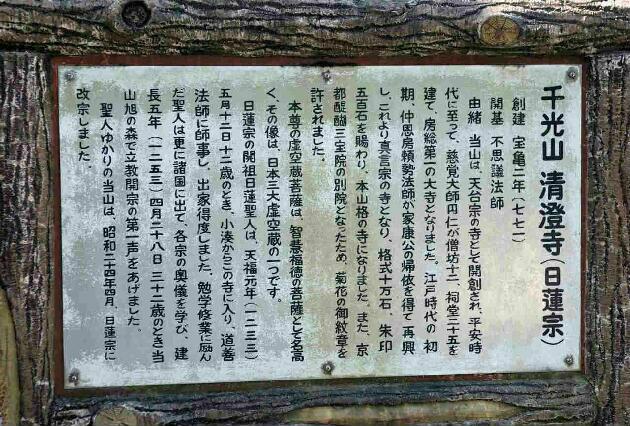 千光山 清澄寺(日蓮宗)
創建 宝亀二年(七七一)
開基 不思議法師
由緒 当山は、天台宗の寺として開創され、平安時
代に至って、慈覚大師円仁が僧坊十二、祠堂二十五を
建て、房総第一の大寺となりました。江戸時代の初
期、仲恩房頼勢法師が家康公の帰依を得て再興
し、これより真言宗の寺となり、格式十万石、朱印
五百石を賜わり、本山格の寺になりました。また、京
都醍醐三宝院の別院となったため、菊花の御紋章を
許されました。
本尊の虚空蔵菩薩は、智慧福徳の菩薩として名高
く、その像は、日本三大虚空蔵の一つです。
日蓮宗の開祖日蓮聖人は、天福元年(一二三三)
五月十二日十二歳のとき、小湊からこの寺に入り、道善
法師に師事し、出家得度しました。勉学修業に励ん
だ聖人は更に諸国に出て、各宗の奥儀を学び、建
長五年(一二五三)四月二十八日 三十二歳のとき当
山旭の森で立教開宗の第一声をあげました。
聖人ゆかりの当山は、昭和二十四年四月、日蓮宗に
改宗しました。